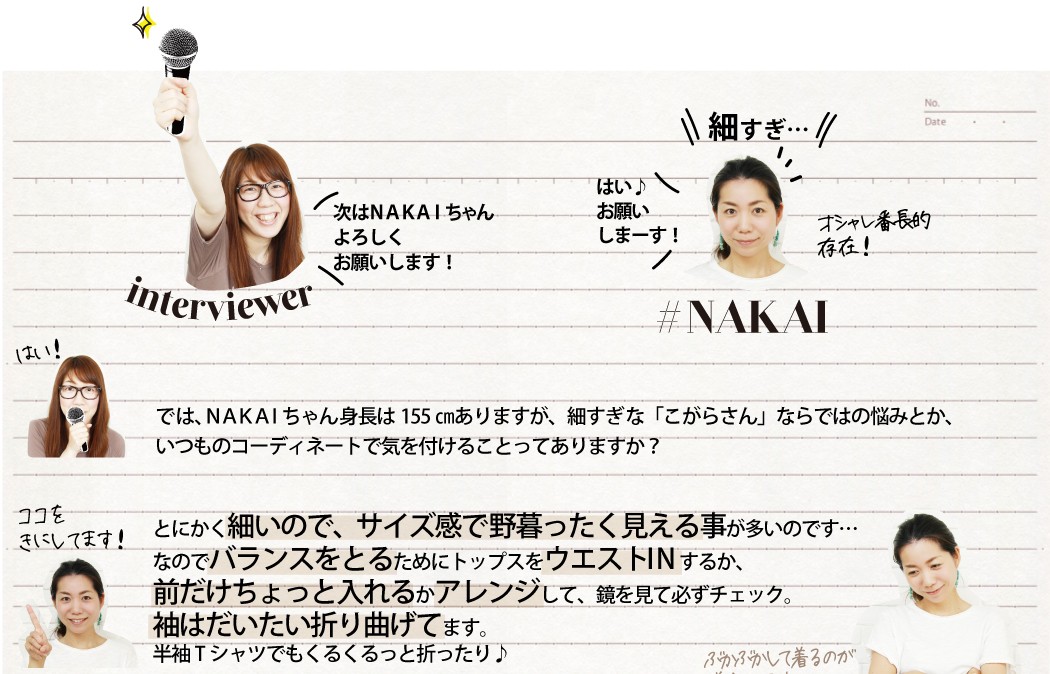 No.
Date ・ ・
細すぎ…
次はNAKAIちゃん
よろしく
お願いします！
はい♪
お願い
しまーす！
オシャレ番長的
存在！
interviewer
#NAKAI
はい！
では、NAKAIちゃん身長は155㎝ありますが、細すぎな「こがらさん」ならではの悩みとか、
いつものコーディネートで気を付けることってありますか？
ココを
きにしてます！
とにかく細いので、サイズ感で野暮ったく見える事が多いのです…
なのでバランスをとるためにトップスをウエストINするか、
前だけちょっと入れるかアレンジして、鏡を見て必ずチェック。
袖はだいたい折り曲げてます。
半袖Tシャツでもくるくるっと折ったり♪
ぶかぶかして着るのが